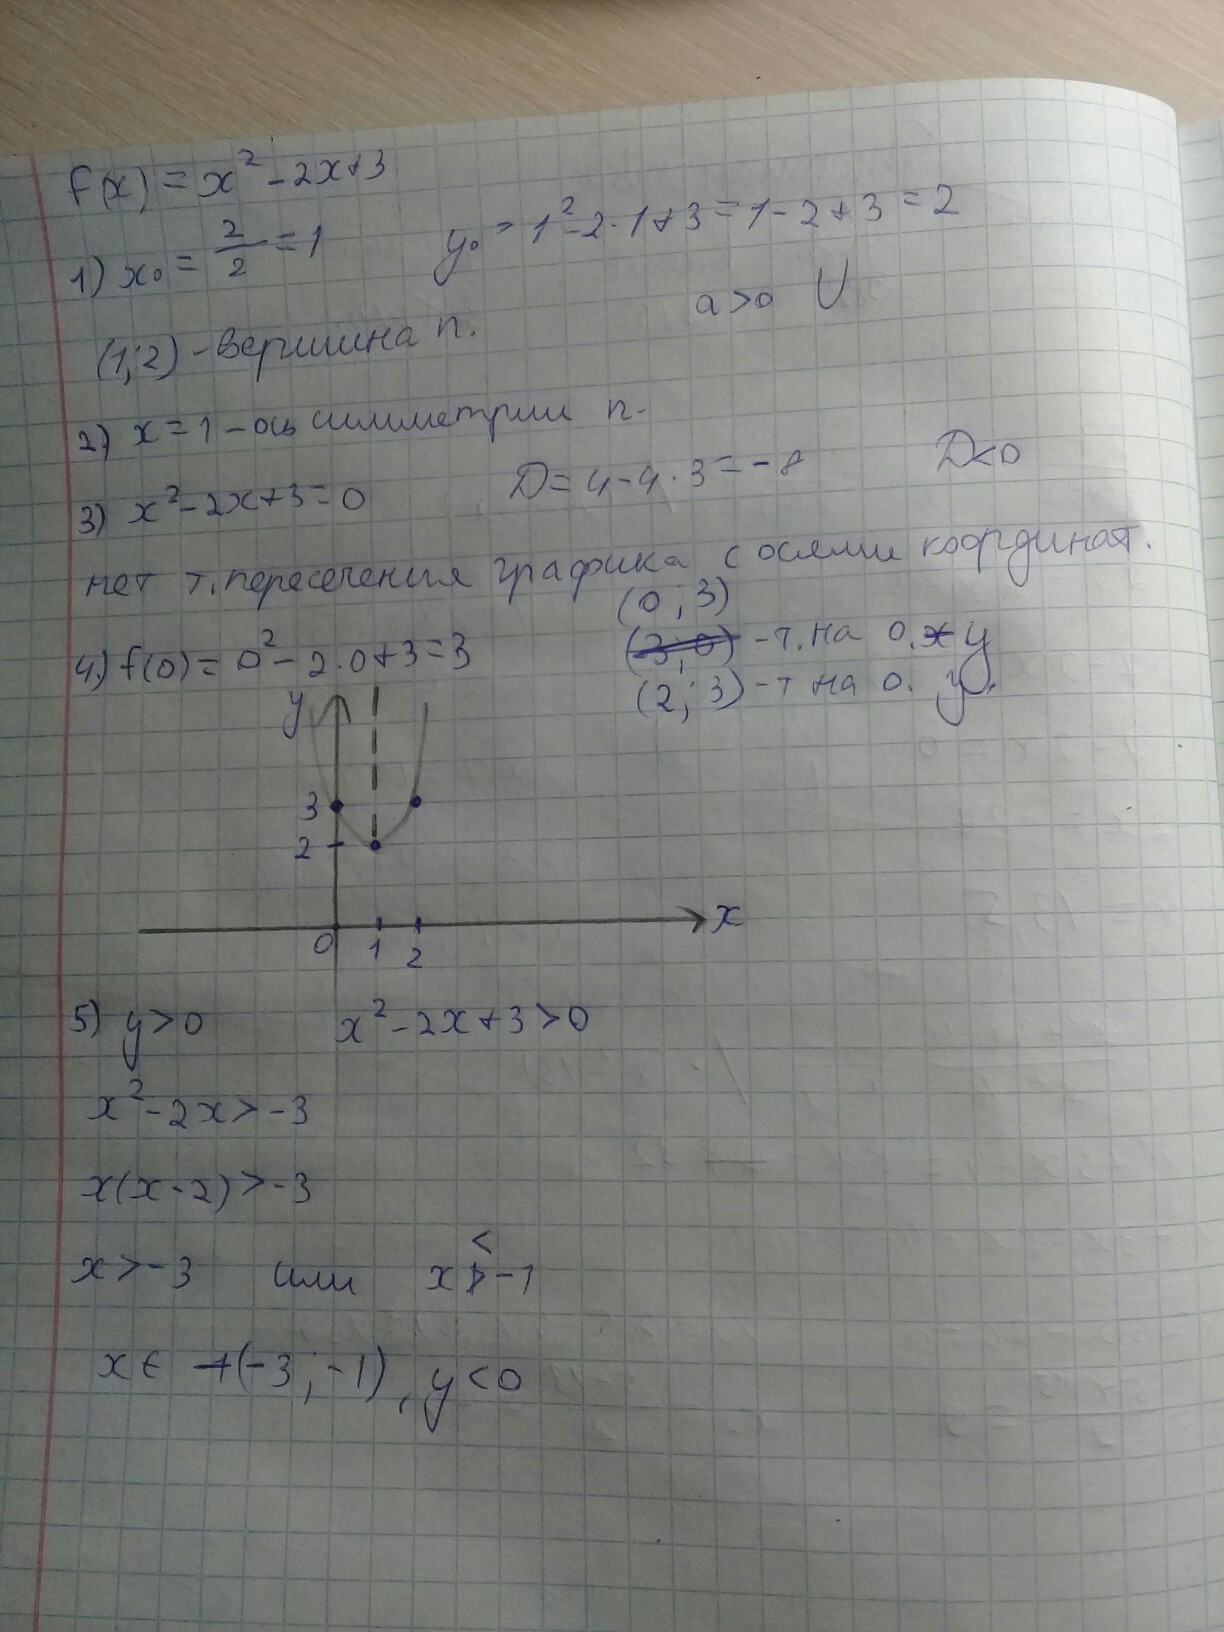 f(x) = x² - 2x + 3
1) x₀ = 2/2 = 1 y₀ = 1² - 2·1 + 3 = 1 - 2 + 3 = 2
(1;2) - вершина п. a > 0 U
2) x = 1 - ось симметрии п.
3) x² - 2x + 3 = 0 D = 4 - 4·3 = -8 D < 0
нет т. пересечения графика с осями координат.
(0;3)
4) f(0) = 0² - 2·0 + 3 = 3 (3;0) - т. на о. x y
(2;3) - т на о. y.
y
3
2
0 1 2 x
5) y > 0 x² - 2x + 3 > 0
x² - 2x > -3
x(x - 2) > -3
x > -3 или x < -1
x ∈ (-3; -1), y < 0